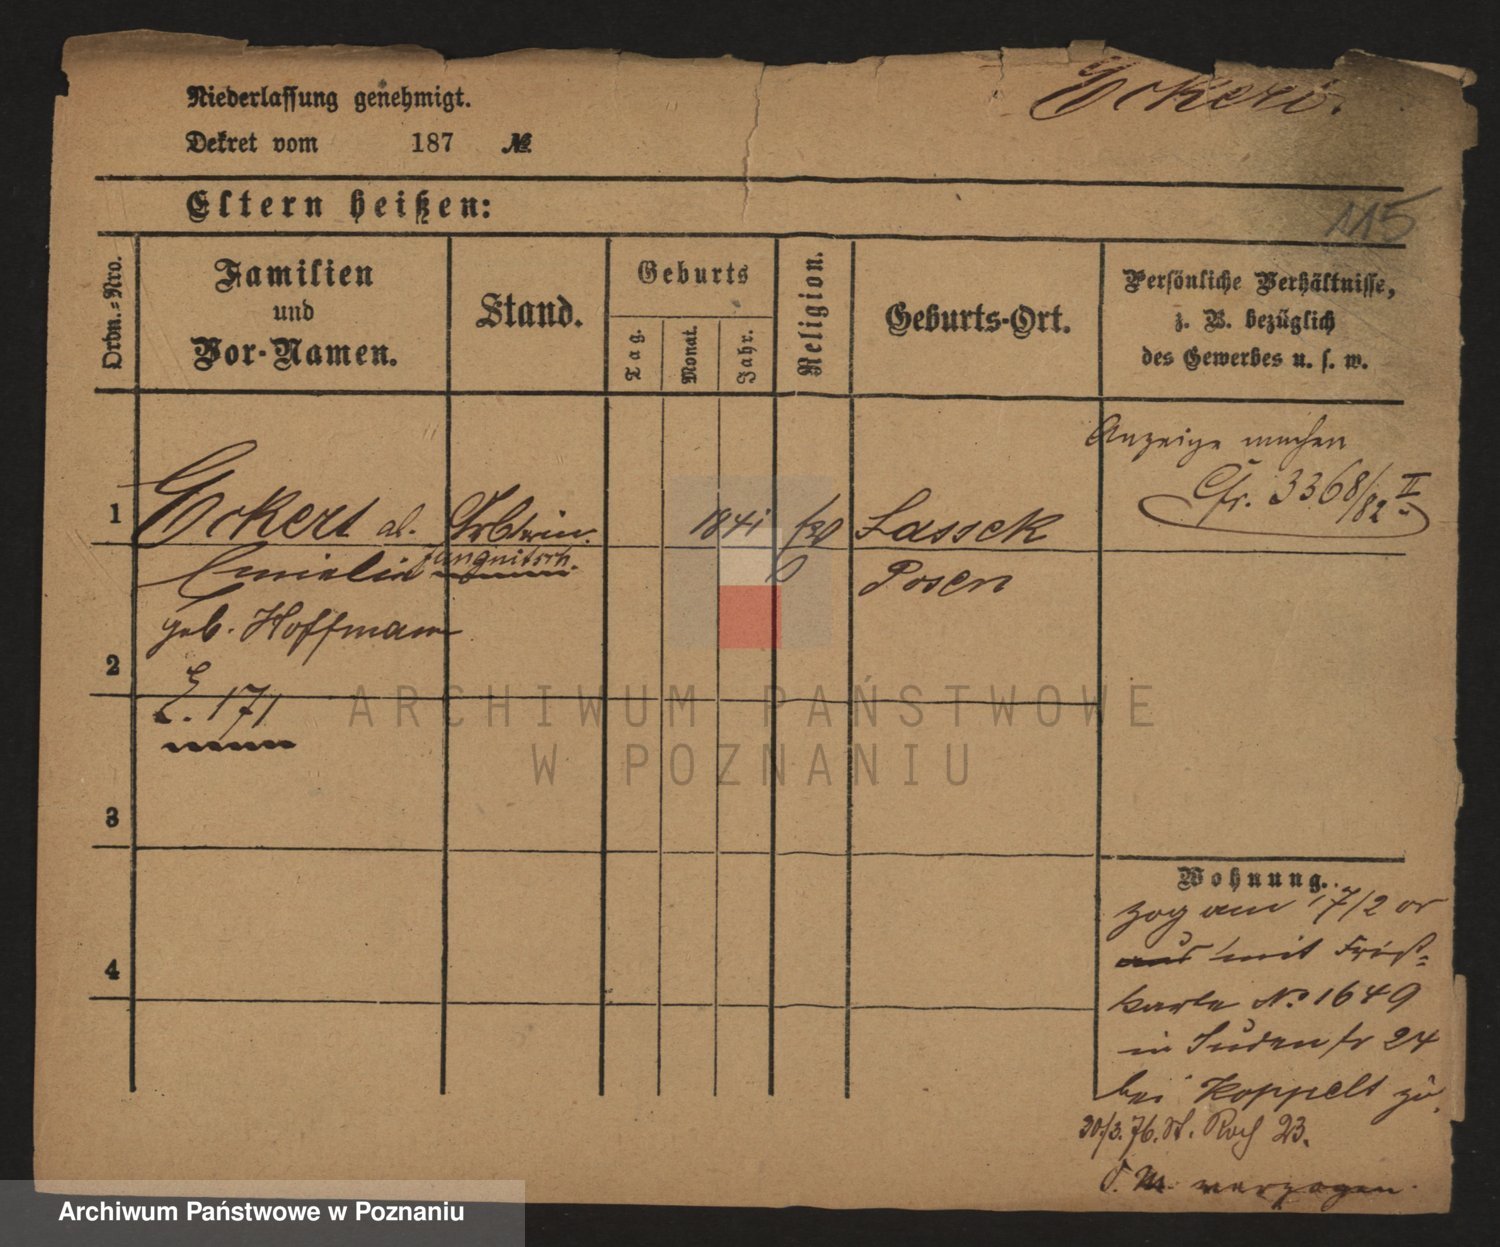 Eckert.
Niederlassung genehmigt.
Dekret vom 187 №
Eltern heißen:
115
Ordn.=Nro.
Familien
und
Vor-Namen.
Stand.
Geburts
Tag.
Monat.
Jahr.
Religion.
Geburts-Ort.
Persönliche Verhältnisse,
z. B. bezüglich
des Gewerbes u. s. w.
Anzeige machen
Cfr. 3368/82 II
1
Eckert al.
1841
Lassek
Emilie
Posen
geb. Hoffmann
2
E. 171
3
4
Wohnung.
zog am 17/2 cr
aus mit Frist=
karte No 1649
in Judenstr 24
bei Koppelt zu.
30/3. 76. St. Roch 23.
verzogen.
ARCHIWUM PAŃSTWOWE
W POZNANIU
Archiwum Państwowe w Poznaniu